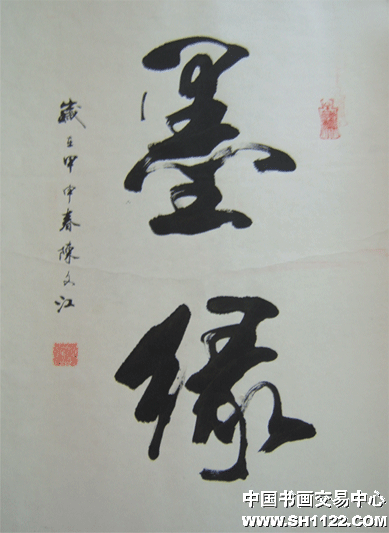 墨缘
歲在甲申春陳文江
中国书画交易中心
www.SH1122.com